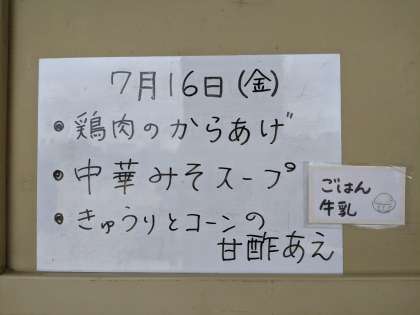 7月16日(金)
・鶏肉のからあげ
・中華みそスープ
・きゅうりとコーンの
甘酢あえ
ごはん
牛乳